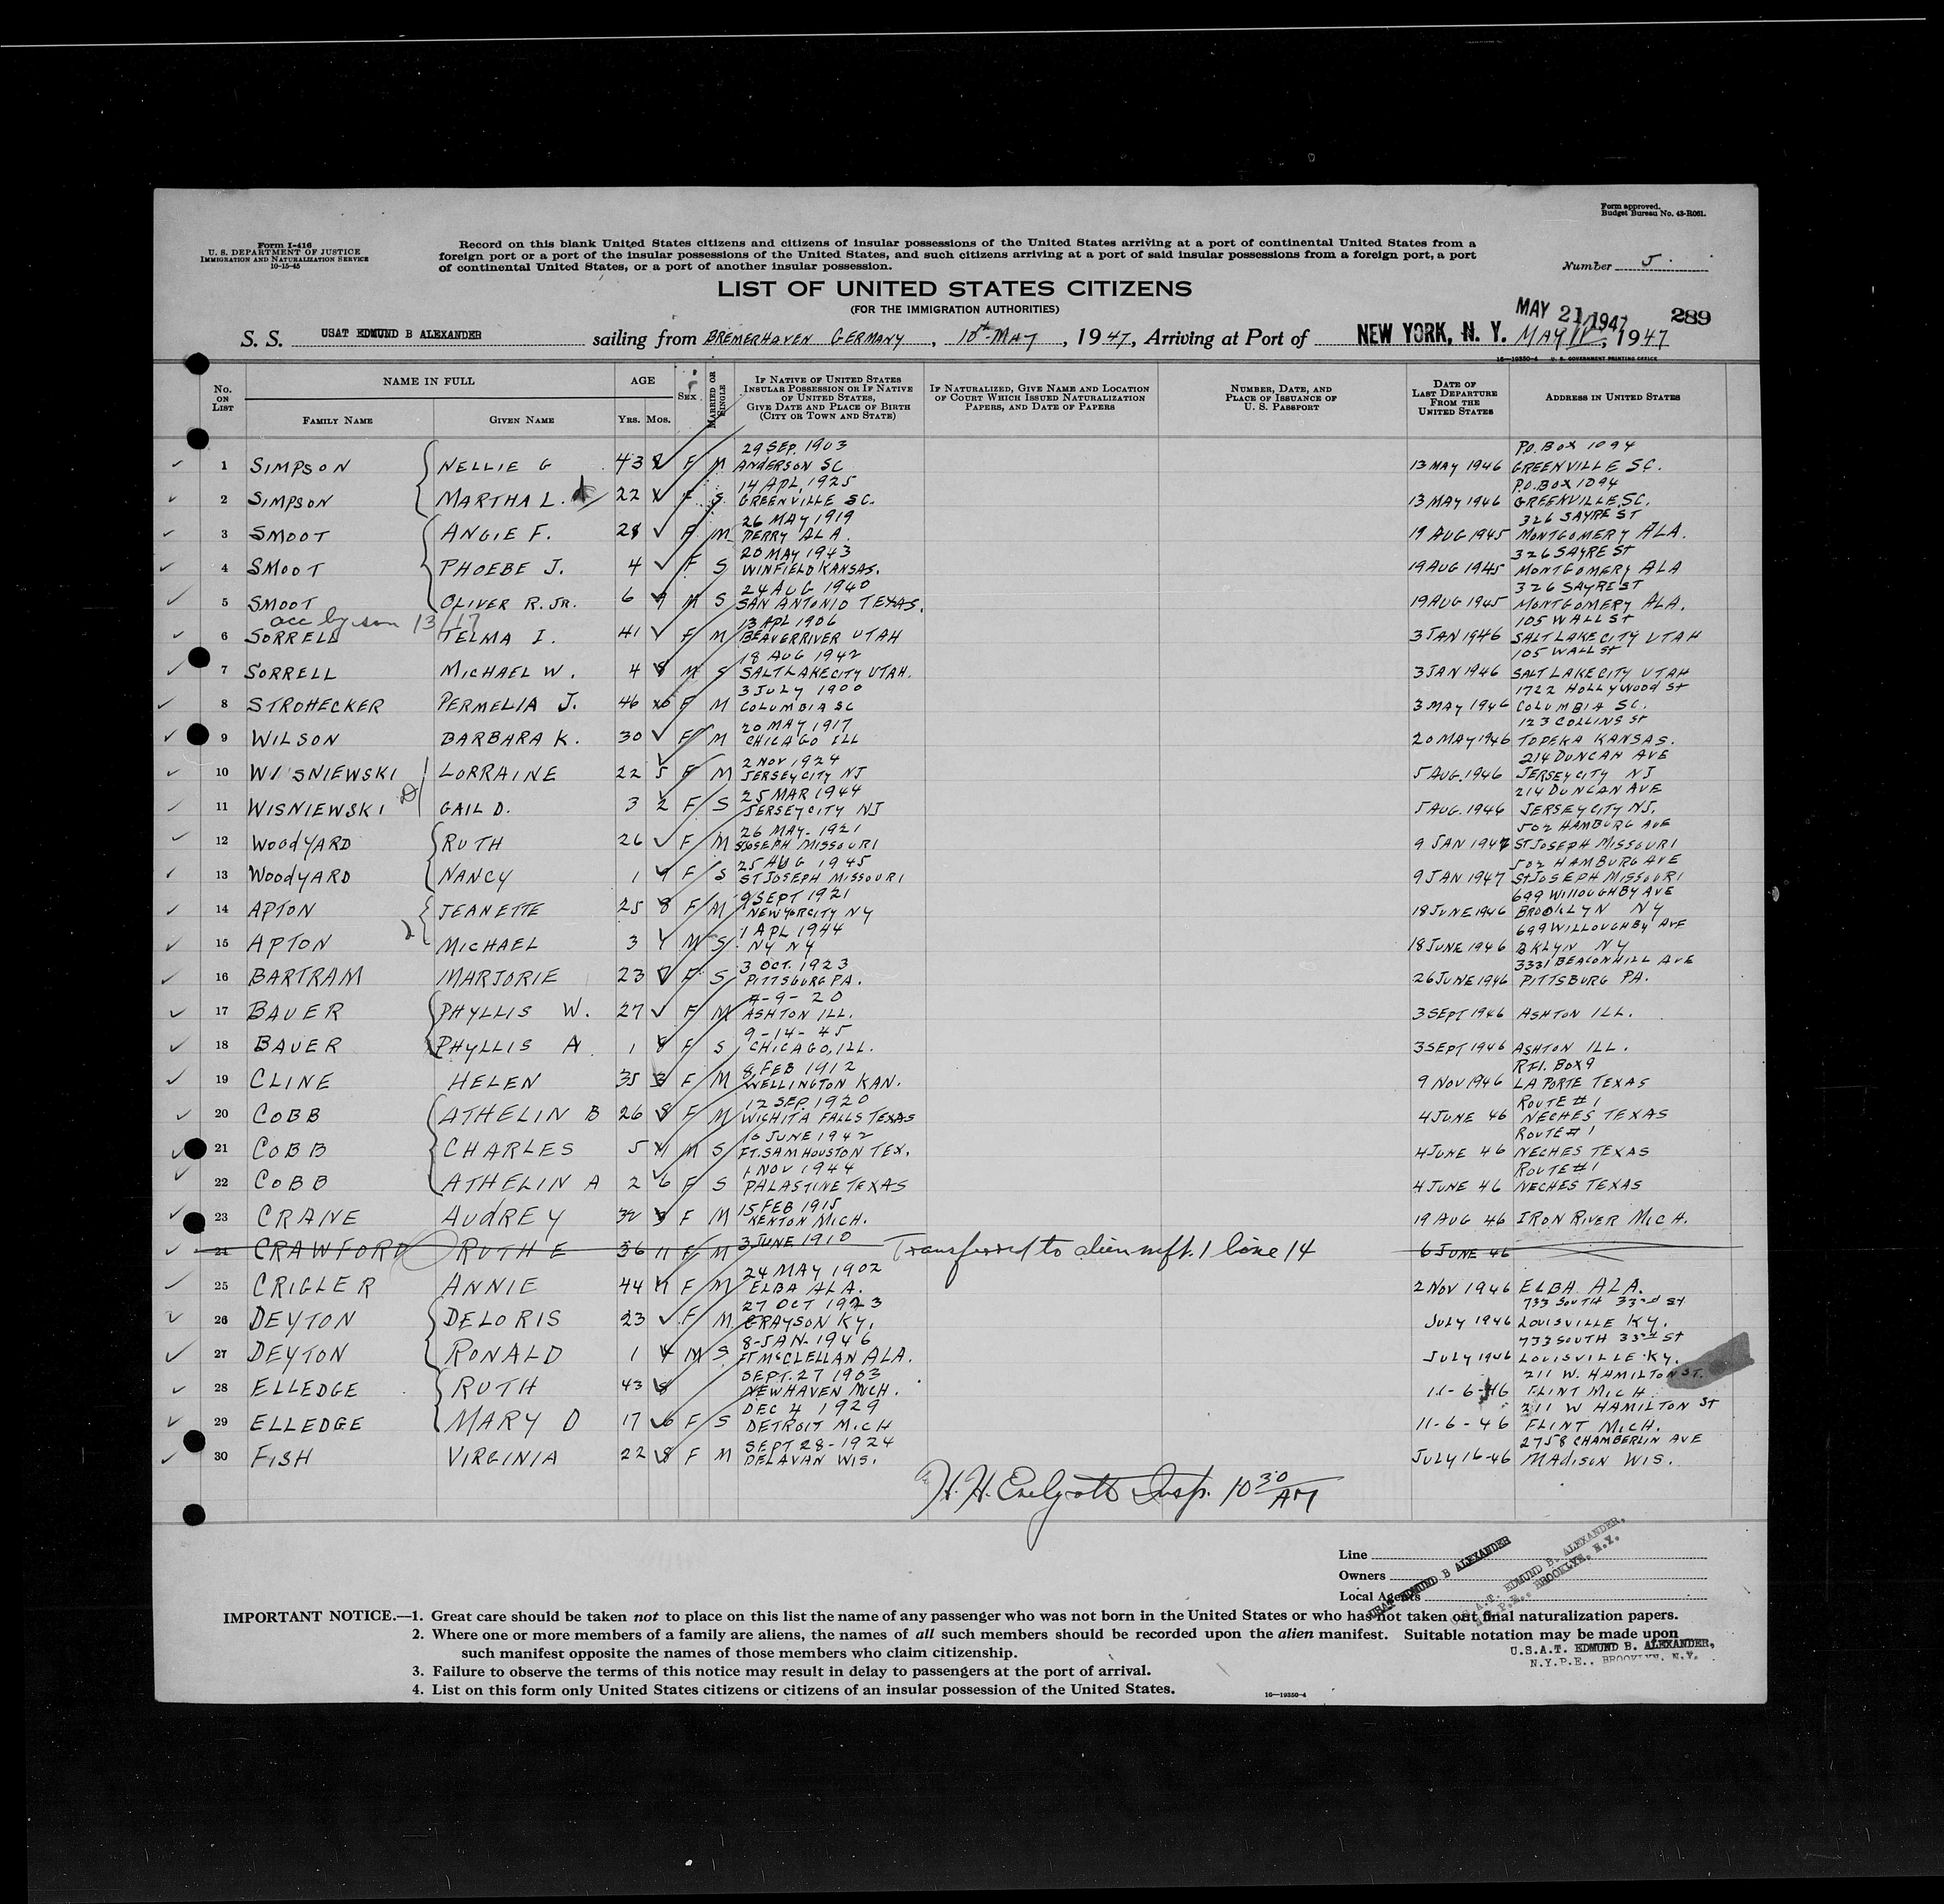 Form approved.
Budget Bureau No. 43-R061.
Form I-416
U. S. DEPARTMENT OF JUSTICE
IMMIGRATION AND NATURALIZATION SERVICE
10-15-45
Record on this blank United States citizens and citizens of insular possessions of the United States arriving at a port of continental United States from a
foreign port or a port of the insular possessions of the United States, and such citizens arriving at a port of said insular possessions from a foreign port, a port
of continental United States, or a port of another insular possession.
Number 5.
LIST OF UNITED STATES CITIZENS
(FOR THE IMMIGRATION AUTHORITIES)
MAY 21 1947 289
S. S. USAT EDMUND B ALEXANDER sailing from BREMERHAVEN GERMANY, 10th MAY, 1947, Arriving at Port of NEW YORK, N. Y. MAY, 1947
16-19350-4 U. S. GOVERNMENT PRINTING OFFICE
No. ON LIST NAME IN FULL FAMILY NAME GIVEN NAME AGE YRS. MOS. SEX MARRIED OR SINGLE IF NATIVE OF UNITED STATES INSULAR POSSESSION OR IF NATIVE OF UNITED STATES, GIVE DATE AND PLACE OF BIRTH (CITY OR TOWN AND STATE) IF NATURALIZED, GIVE NAME AND LOCATION OF COURT WHICH ISSUED NATURALIZATION PAPERS, AND DATE OF PAPERS NUMBER, DATE, AND PLACE OF ISSUANCE OF U. S. PASSPORT DATE OF LAST DEPARTURE FROM THE UNITED STATES ADDRESS IN UNITED STATES
29 SEP. 1903 P.O. BOX 1094
1 SIMPSON NELLIE G 43 F M ANDERSON SC 13 MAY 1946 GREENVILLE SC.
14 APL, 1925 P.O. BOX 1094
2 SIMPSON MARTHA L. 22 F S GREENVILLE SC. 13 MAY 1946 GREENVILLE SC.
26 MAY 1919 326 SAYRE ST
3 SMOOT ANGIE F. 28 F M PERRY ALA. 19 AUG 1945 MONTGOMERY ALA.
20 MAY 1943 326 SAYRE ST
4 SMOOT PHOEBE J. 4 F S WINFIELD KANSAS. 19 AUG 1945 MONTGOMERY ALA
24 AUG 1940 326 SAYRE ST
5 SMOOT OLIVER R. JR. 6 M S SAN ANTONIO TEXAS. 19 AUG 1945 MONTGOMERY ALA.
acc by son 13/17 13 APL 1906 105 WALL ST
6 SORRELL TELMA I. 41 F M BEAVER RIVER UTAH 3 JAN 1946 SALT LAKE CITY UTAH
18 AUG 1942 105 WALL ST
7 SORRELL MICHAEL W. 4 8 M S SALT LAKE CITY UTAH. 3 JAN 1946 SALT LAKE CITY UTAH
3 JULY 1900 1722 HOLLYWOOD ST
8 STROHECKER PERMELIA J. 46 F M COLUMBIA SC 3 MAY 1946 COLUMBIA SC.
20 MAY 1917 123 COLLINS ST
9 WILSON BARBARA K. 30 F M CHICAGO ILL 20 MAY 1946 TOPEKA KANSAS.
2 NOV 1924 214 DUNCAN AVE
10 WISNIEWSKI LORRAINE 22 5 F M JERSEY CITY NJ 5 AUG. 1946 JERSEY CITY NJ
25 MAR 1944 214 DUNCAN AVE
11 WISNIEWSKI GAIL D. 3 2 F S JERSEY CITY NJ 5 AUG. 1946 JERSEY CITY NJ.
26 MAY. 1921 502 HAMBURG AVE
12 WOODYARD RUTH 26 F M ST JOSEPH MISSOURI 9 JAN 1947 ST JOSEPH MISSOURI
25 AUG 1945 502 HAMBURG AVE
13 WOODYARD NANCY 1 F S ST JOSEPH MISSOURI 9 JAN 1947 ST JOSEPH MISSOURI
9 SEPT 1921 699 WILLOUGHBY AVE
14 APTON JEANETTE 25 8 F M NEW YORCITY NY 18 JUNE 1946 BROOKLYN NY
1 APL 1944 699 WILLOUGHBY AVE
15 APTON MICHAEL 3 M S NY NY 18 JUNE 1946 BKLYN NY
3 OCT. 1923 3331 BEACONHILL AVE
16 BARTRAM MARJORIE 23 7 F S PITTSBURG PA. 26 JUNE 1946 PITTSBURG PA.
4-9-20
17 BAUER PHYLLIS W. 27 F M ASHTON ILL. 3 SEPT 1946 ASHTON ILL.
9-14-45
18 BAUER PHYLLIS A. 1 8 F S CHICAGO, ILL. 3 SEPT 1946 ASHTON ILL.
8 FEB 1912 RT1. BOX 9
19 CLINE HELEN 35 3 F M WELLINGTON KAN. 9 NOV 1946 LA PORTE TEXAS
12 SEP. 1920 ROUTE #1
20 COBB ATHELIN B 26 8 F M WICHITA FALLS TEXAS 4 JUNE 46 NECHES TEXAS
JUNE 1942 ROUTE #1
21 COBB CHARLES 5 M S FT. SAM HOUSTON TEX. 4 JUNE 46 NECHES TEXAS
1 NOV 1944 ROUTE #1
22 COBB ATHELIN A 2 6 F S PALASTINE TEXAS 4 JUNE 46 NECHES TEXAS
15 FEB 1915
23 CRANE AUDREY 32 3 F M KENTON MICH. 19 AUG 46 IRON RIVER MICH.
24 CRAWFORD RUTH E 36 11 F M 3 JUNE 1910 Transferred to alien mft. 1 line 14 6 JUNE 46
24 MAY 1902
25 CRIGLER ANNIE 44 11 F M ELBA ALA. 2 NOV 1946 ELBA ALA.
27 OCT 1923 733 SOUTH 33rd ST
26 DEYTON DELORIS 23 F M GRAYSON KY, JULY 1946 LOUISVILLE KY.
8-JAN-1946 733 SOUTH 33rd ST
27 DEYTON RONALD 1 4 M S FT McCLELLAN ALA. JULY 1946 LOUISVILLE KY.
SEPT. 27 1903 211 W. HAMILTON ST.
28 ELLEDGE RUTH 43 8 NEWHAVEN MICH. 11-6-46 FLINT MICH
DEC 4 1929 211 W HAMILTON ST
29 ELLEDGE MARY D 17 6 F S DETROIT MICH 11-6-46 FLINT MICH.
SEPT 28-1924 2758 CHAMBERLIN AVE
30 FISH VIRGINIA 22 8 F M DELAVAN WIS. JULY 16-46 MADISON WIS.
H. H. Insp. 10 30 AM
Line
Owners
Local Agents
USAT EDMUND B ALEXANDER
U.S.A.T. EDMUND B. ALEXANDER,
N.Y.P.E., BROOKLYN, N.Y.
IMPORTANT NOTICE.—1. Great care should be taken not to place on this list the name of any passenger who was not born in the United States or who has not taken out final naturalization papers.
2. Where one or more members of a family are aliens, the names of all such members should be recorded upon the alien manifest. Suitable notation may be made upon
such manifest opposite the names of those members who claim citizenship.
3. Failure to observe the terms of this notice may result in delay to passengers at the port of arrival.
4. List on this form only United States citizens or citizens of an insular possession of the United States.
U.S.A.T. EDMUND B. ALEXANDER,
N.Y.P.E., BROOKLYN, N.Y.
16-19350-4